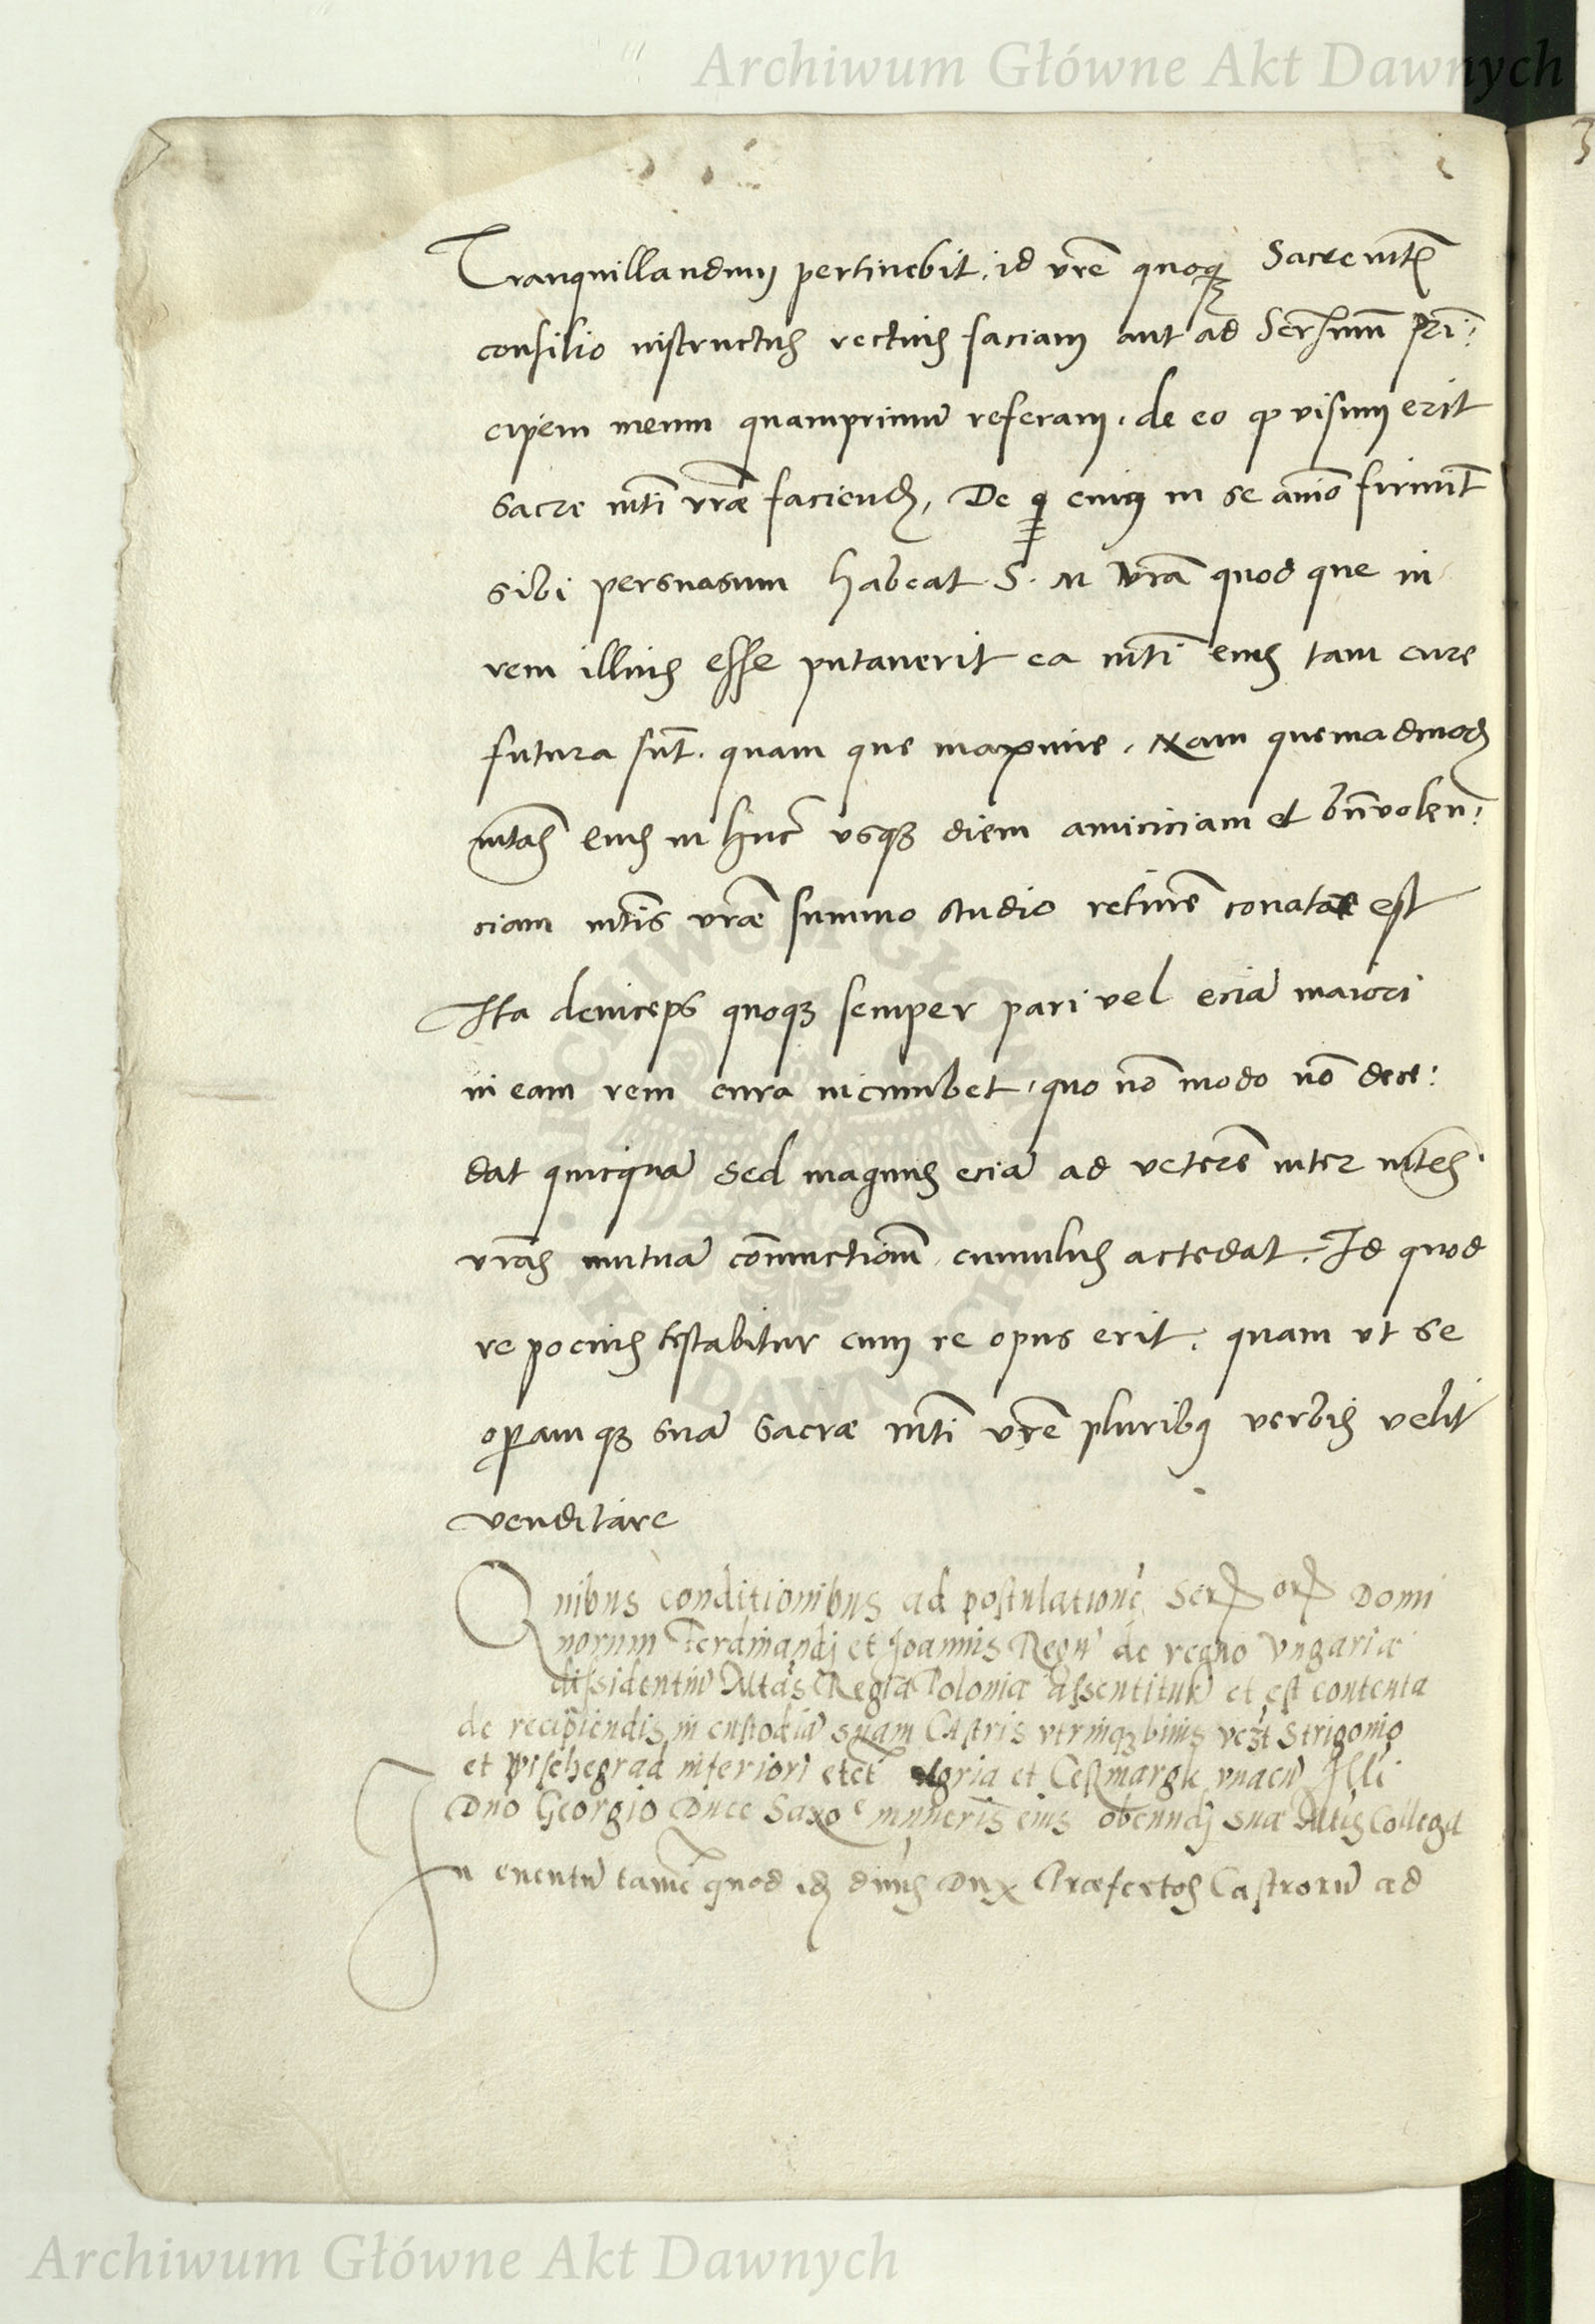 Archiwum Główne Akt Dawnych
Tranquillandum pertinebit, id vrē quoqꝫ Sacre mtē
consilio instructus rectius faciam aut ad Serᵐᵘᵐ Prī:
cipem meum quamprimū referam, de eo qᵈ visum erit
sacre mti vræ faciend, De q enim in se aīo
sibi persuasum habeat S. M vrā quod que in
rem illius esse putaverit ea mti eius tam cure
futura sūt. quam que maxime, Nam quemadmod
mtas eius in hūc usqꝫ diem amiciciam et bn̄volen:
ciam mtis vræ summo studio retinē conata est
Ita deinceps quoqꝫ semper pari vel eciā maiori
in eam rem cura incumbet, quo nō modo nō dece:
dat quicquā sed magnus eciā ad veterē inter mtes
vrās mutuā coniunctionem cumulus accedat. Id quod
re pocius testabitur cum re opus erit, quam ut se
operamqꝫ suā sacræ mti vrē pluribꝯ verbis velit
venditare
Quibus conditionibus ad postulationē Ser orꝝ Domi
norum Ferdinandj et Joannis Regū de regno Vngariæ
dissidentiū Mtas Regia Poloniæ assentitur et est contenta
de recipiendis in custodiā suam Castris utrinqꝫ binis vezt Strigonio
et Wischegrad inferiori et Agria et Cesmargk vnacū Illi
Dno Georgio Duce Saxo muneris eius obeundj suæ Mtis Collega
In euentū tamē quod id Dux Præfectos Castrorū ad
Archiwum Główne Akt Dawnych